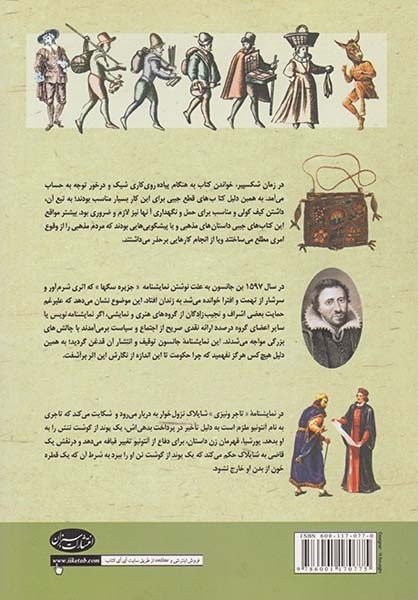 در زمان شکسپیر، خواندن کتاب به هنگام پیاده روی کاری شیک و درخور توجه به حساب
می‌آمد. به همین دلیل کتا ب‌های قطع جیبی برای این کار بسیار مناسب بودند؛ به تبع آن،
داشتن کیف کولی و مناسب برای حمل و نگهداری آ نها نیز لازم و ضروری بود. بیشتر مواقع
این کتاب‌های جیبی داستان‌های مذهبی و یا پیشگویی‌هایی بودند که مردم مذهبی را از وقوع
امری مطلع می‌ساختند ویا از انجام کارهایی برحذر می‌داشتند.
در سال ۱۵۹۷ بن جانسون به علت نوشتن نمایشنامه «جزیره سگها» که اثری شرم‌آور و
سرشار از تهمت و افترا خوانده می‌شد به زندان افتاد. این موضوع نشان می‌دهد که علیرغم
حمایت بعضی اشراف و نجیب‌زادگان از گروه‌های هنری و نمایشی، اگر نمایشنامه‌نویس یا
سایر اعضای گروه درصدد ارائه نقدی صریح از اجتماع و سیاست برمی‌آمدند با چالش‌های
بزرگی مواجه می‌شدند. این نمایشنامهٔ جانسون توقیف و انتشار آن قدغن گردید؛ به همین
دلیل هیچ کس هرگز نفهمید که چرا حکومت تا این اندازه از نگارش این اثر برآشفت.
در نمایشنامهٔ «تاجر ونیزی» شایلاک نزول‌خوار به دربار می‌رود و شکایت می‌کند که تاجری
به نام آنتونیو ملزم است به دلیل تأخیر در پرداخت بدهی‌اش، یک پوند از گوشت تنش را به
او بدهد. پورشیا، قهرمان زن داستان، برای دفاع از آنتونیو تغییر قیافه می‌دهد و درنقش یک
قاضی به شایلاک حکم می‌کند که یک پوند از گوشت تن او را ببرد به شرط آن که یک قطره
خون از بدن او خارج نشود.
ISBN 600-117-077-0
9 786001 170775
فروش اینترنتی و online از طریق سایت آی آی کتاب
www.iiketab.com